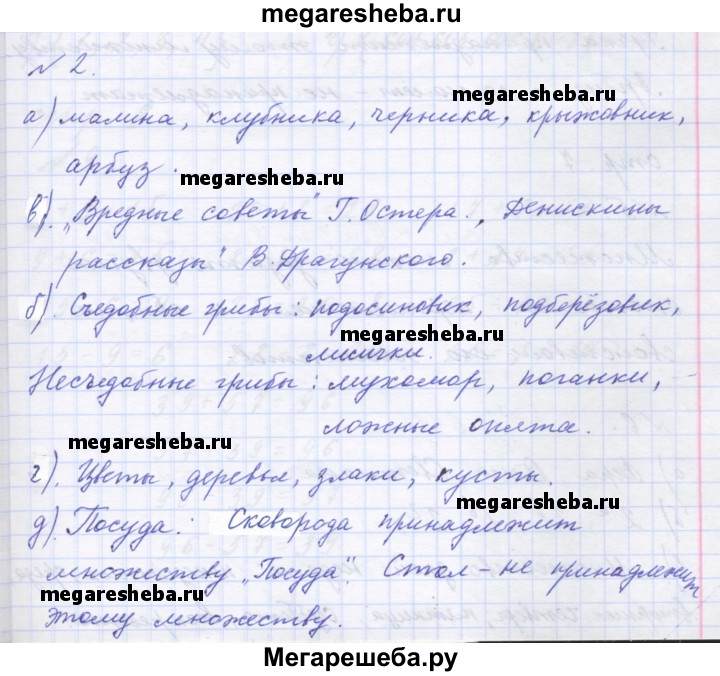 megaresheba.ru
№ 2.
megaresheba.ru
а) малина, клубника, черника, крыжовник,
арбуз.
megaresheba.ru
в). „Вредные советы" Г. Остера., Денискины
рассказы" В. Драгунского.
б). Съедобные грибы: подосиновик, подберёзовик,
megaresheba.ru
лисички.
Несъедобные грибы: мухомор, поганки,
ложные опята.
megaresheba.ru
г). Цветы, деревья, злаки, кусты.
megaresheba.ru
д). Посуда: Сковорода принадлежит
множеству „Посуда". Стол – не принадлежит
megaresheba.ru
этому множеству.
Мегарешеба.ру